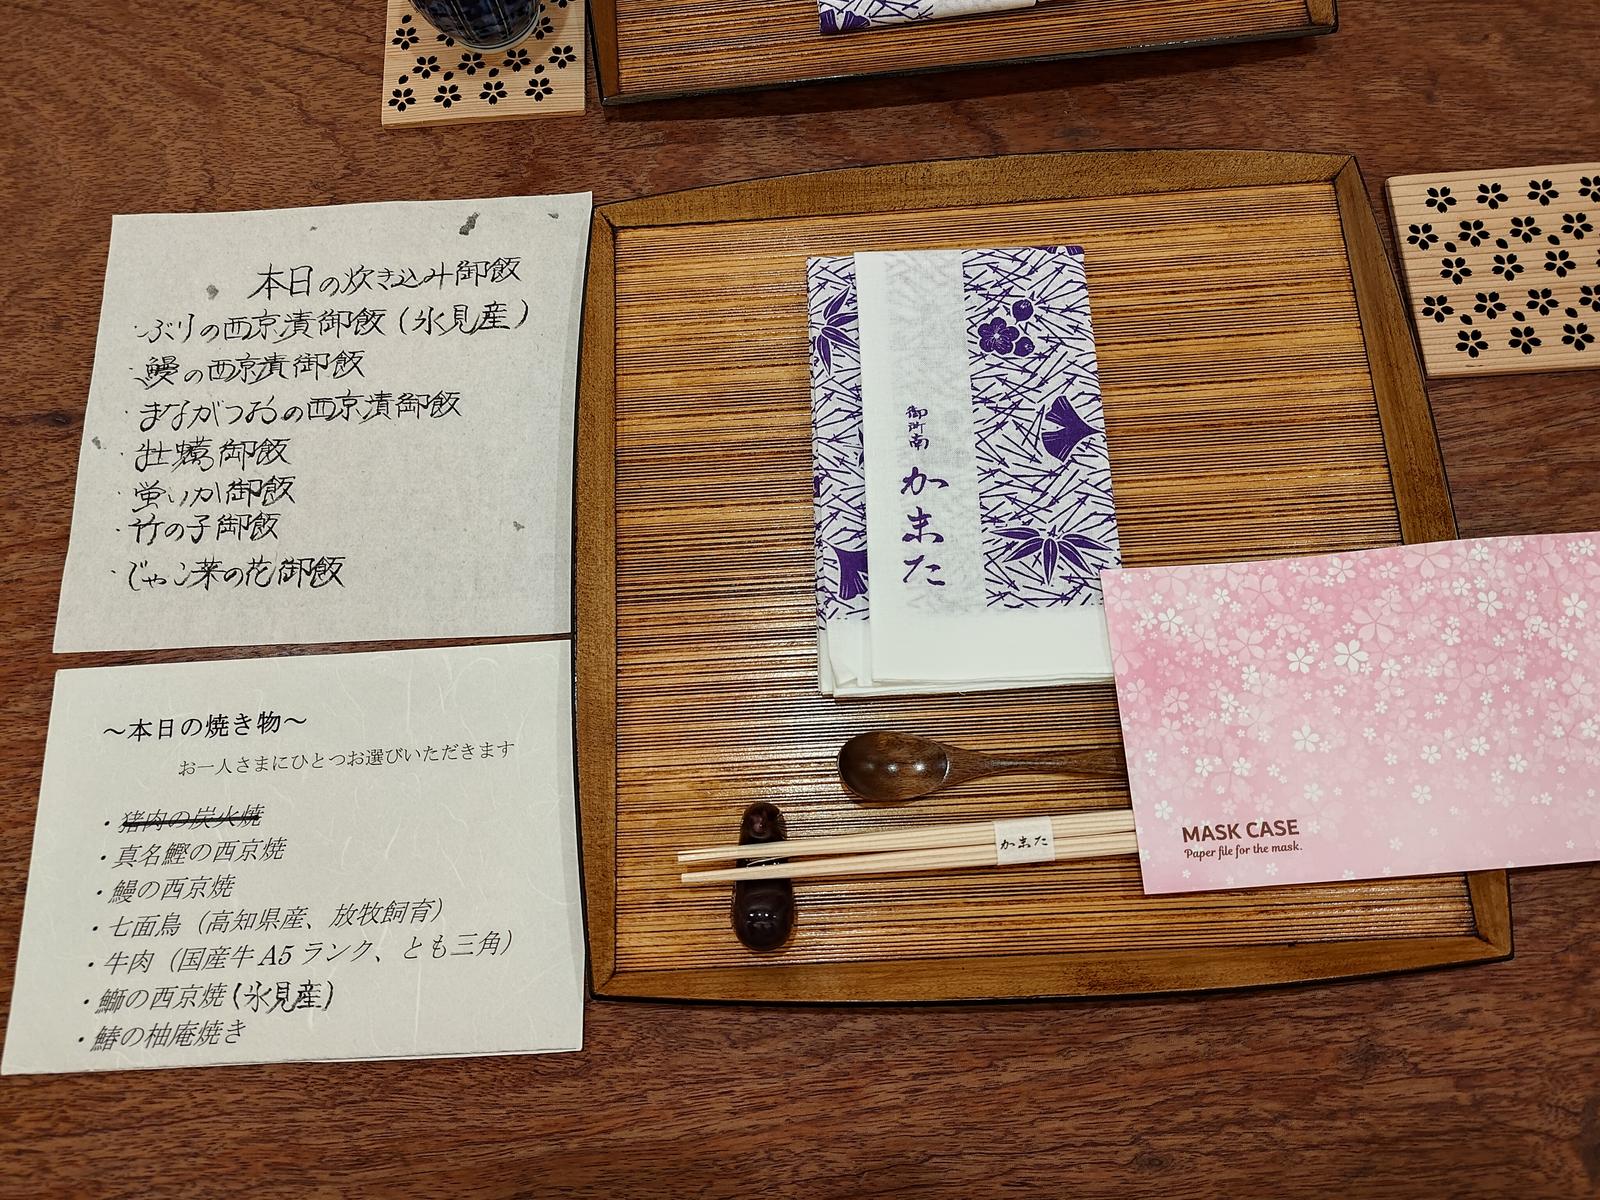 本日の炊き込み御飯
・ぶりの西京漬御飯(氷見産)
・鰻の西京漬御飯
・まながつおの西京漬御飯
・牡蠣御飯
・蛍いか御飯
・竹の子御飯
・じゃこ菜の花御飯
～本日の焼き物～
お一人さまにひとつお選びいただきます
・猪肉の炭火焼
・真名鰹の西京焼
・鰻の西京焼
・七面鳥（高知県産、放牧飼育）
・牛肉（国産牛A5ランク、とも三角）
・鰤の西京焼(氷見産)
・鰆の柚庵焼き
御所南
かまた
かまた
MASK CASE
Paper file for the mask.